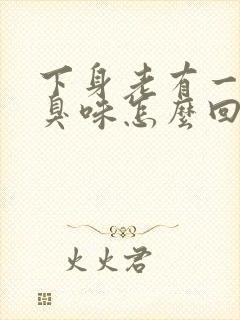 下身老有一
臭味怎麼回
火火君